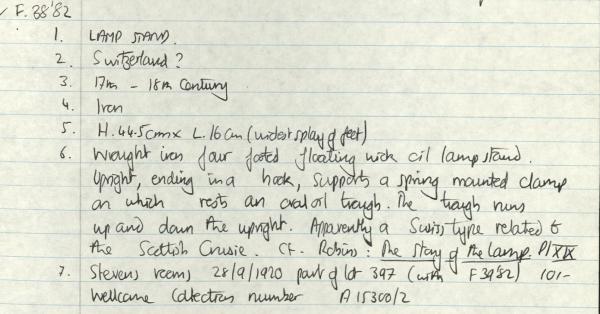 ✓ F.38'82
1. LAMP STAND.
2. Switzerland?
3. 17th - 18th Century
4. Iron
5. H. 44.5cm x L. 16cm (widest splay of feet)
6. Wrought iron four footed floating wick oil lampstand.
Upright, ending in a hook, supports a spring mounted clamp
on which rests an oval oil trough. The trough runs
up and down the upright. Apparently a Swiss type related to
the Scottish Crusie. Cf. Robins: The story of the lamp. Pl XIX
7. Stevens rooms 28/9/1920 part of lot 397 (with F39'82) 10/-
Wellcome Collection number A15300/2